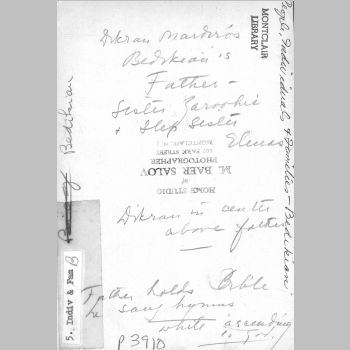 Dikran Mardiros
Bedikian's
Father -
Sister Zaroohie
& Step Sister
Elmas
HOME STUDIO
of
M. BAER SALOV
PHOTOGRAPHER
107 PARK STREET
MONTCLAIR, N.J.
Dikran in center
above father
Father holds Bible
He sang hymns
while ascending
P3910
MONTCLAIR
LIBRARY
People, Individuals & Families - Bedikian
Bedikian
5. Indiv & Fam B